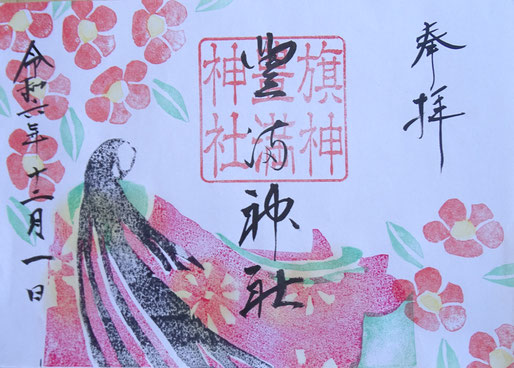 奉拝
豊満神社
旗神
豊満
神社
令和六年十二月一日